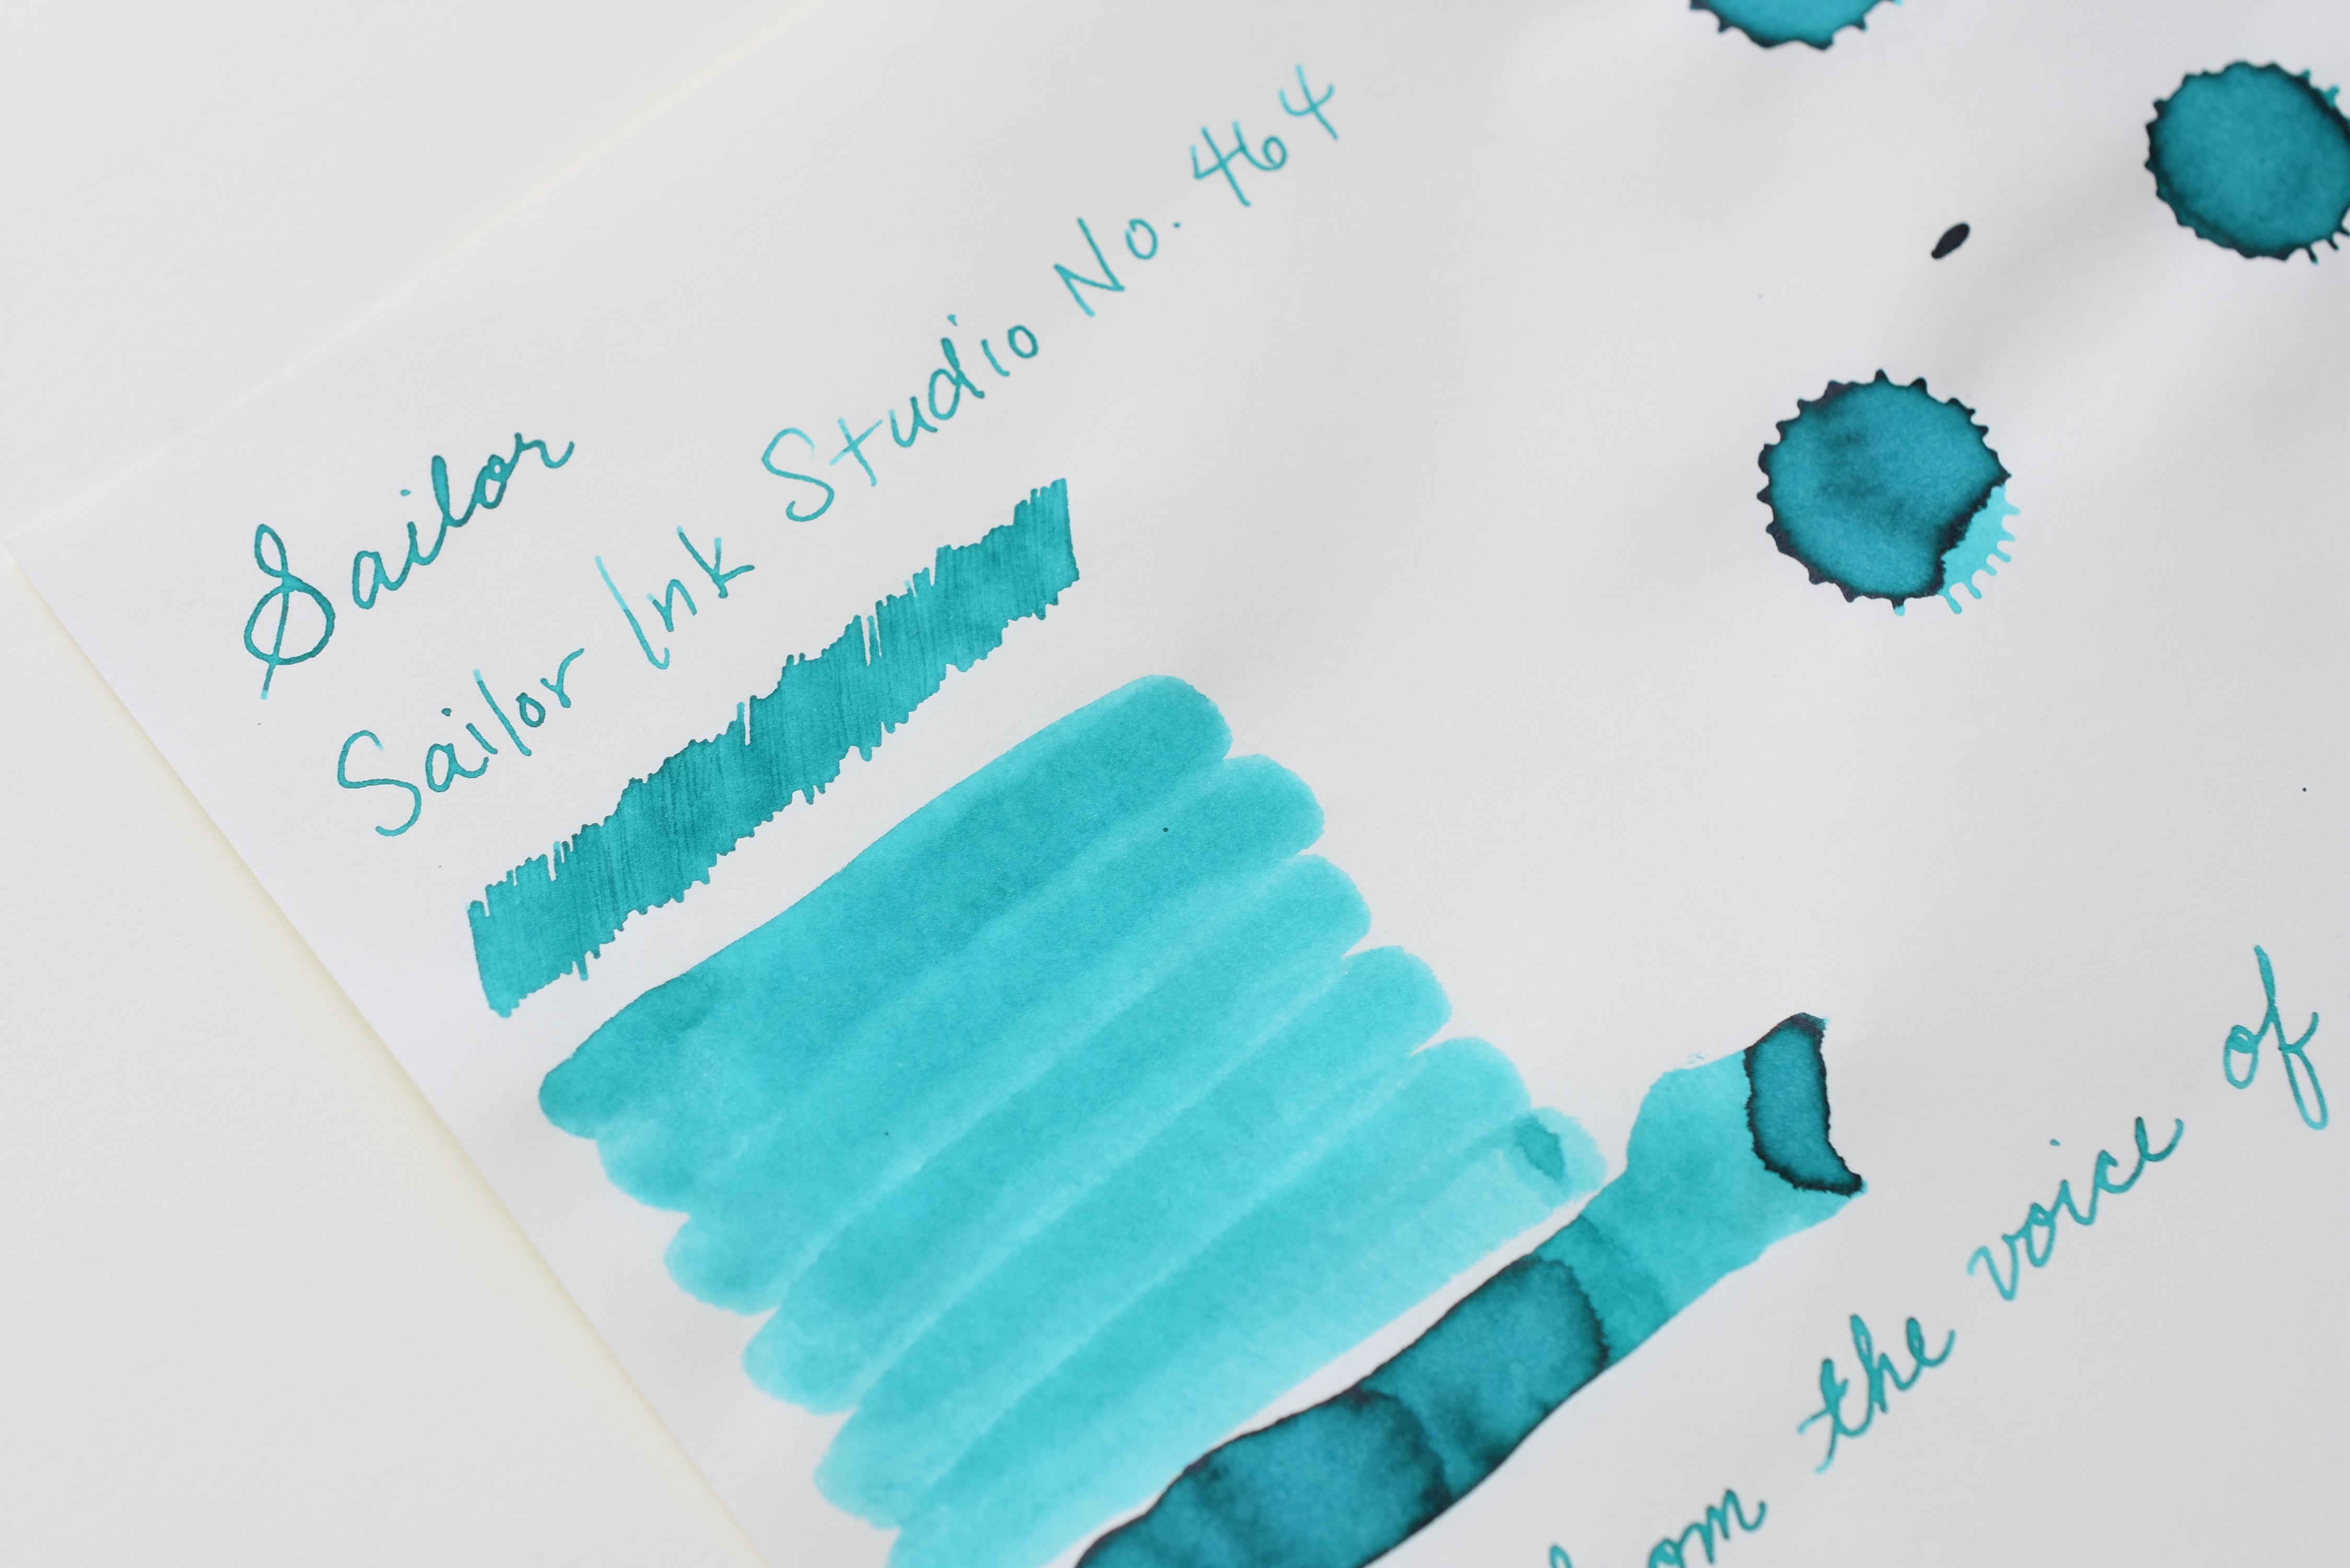 Sailor
Sailor Ink Studio No. 464
the voice of